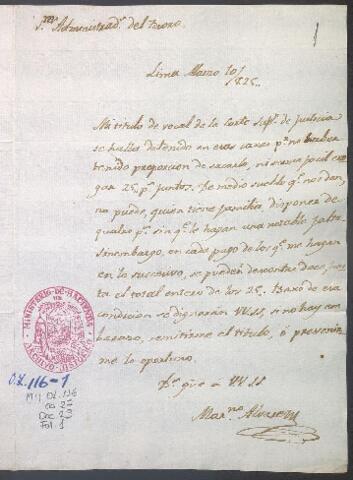 S.res Administrad.s del Tesoro.
1
Lima Marzo 10/825.
Mi titulo de vocal de la Corte Sup.r de Justicia
se halla detenido en esas caxas p.r no haber
tenido proporcion de sacarlo, ni ser facil en
gar 25 p.s juntos. De medio sueldo q.e nos dan,
no puede, quien tiene familia, disponer de
quales p.s sin q.e le hagan una notable falta.
Sin embargo, en cada pago de los q.e me hagan
en lo succesivo, se pueden descontar dos p.s
ta el total entero de los 25. Baxo de esa
condicion se dignarán VV.SS., si no hay em
barazo, remitirme el titulo, ó prevenir
me lo oportuno.
D.s gue á VV.SS.
Mar.no Alvarez
MINISTERIO DE HACIENDA
ARCHIVO HISTORICO
O.L. 116-1
MH OL 116
Ca 22
Doc 23
Fol 1